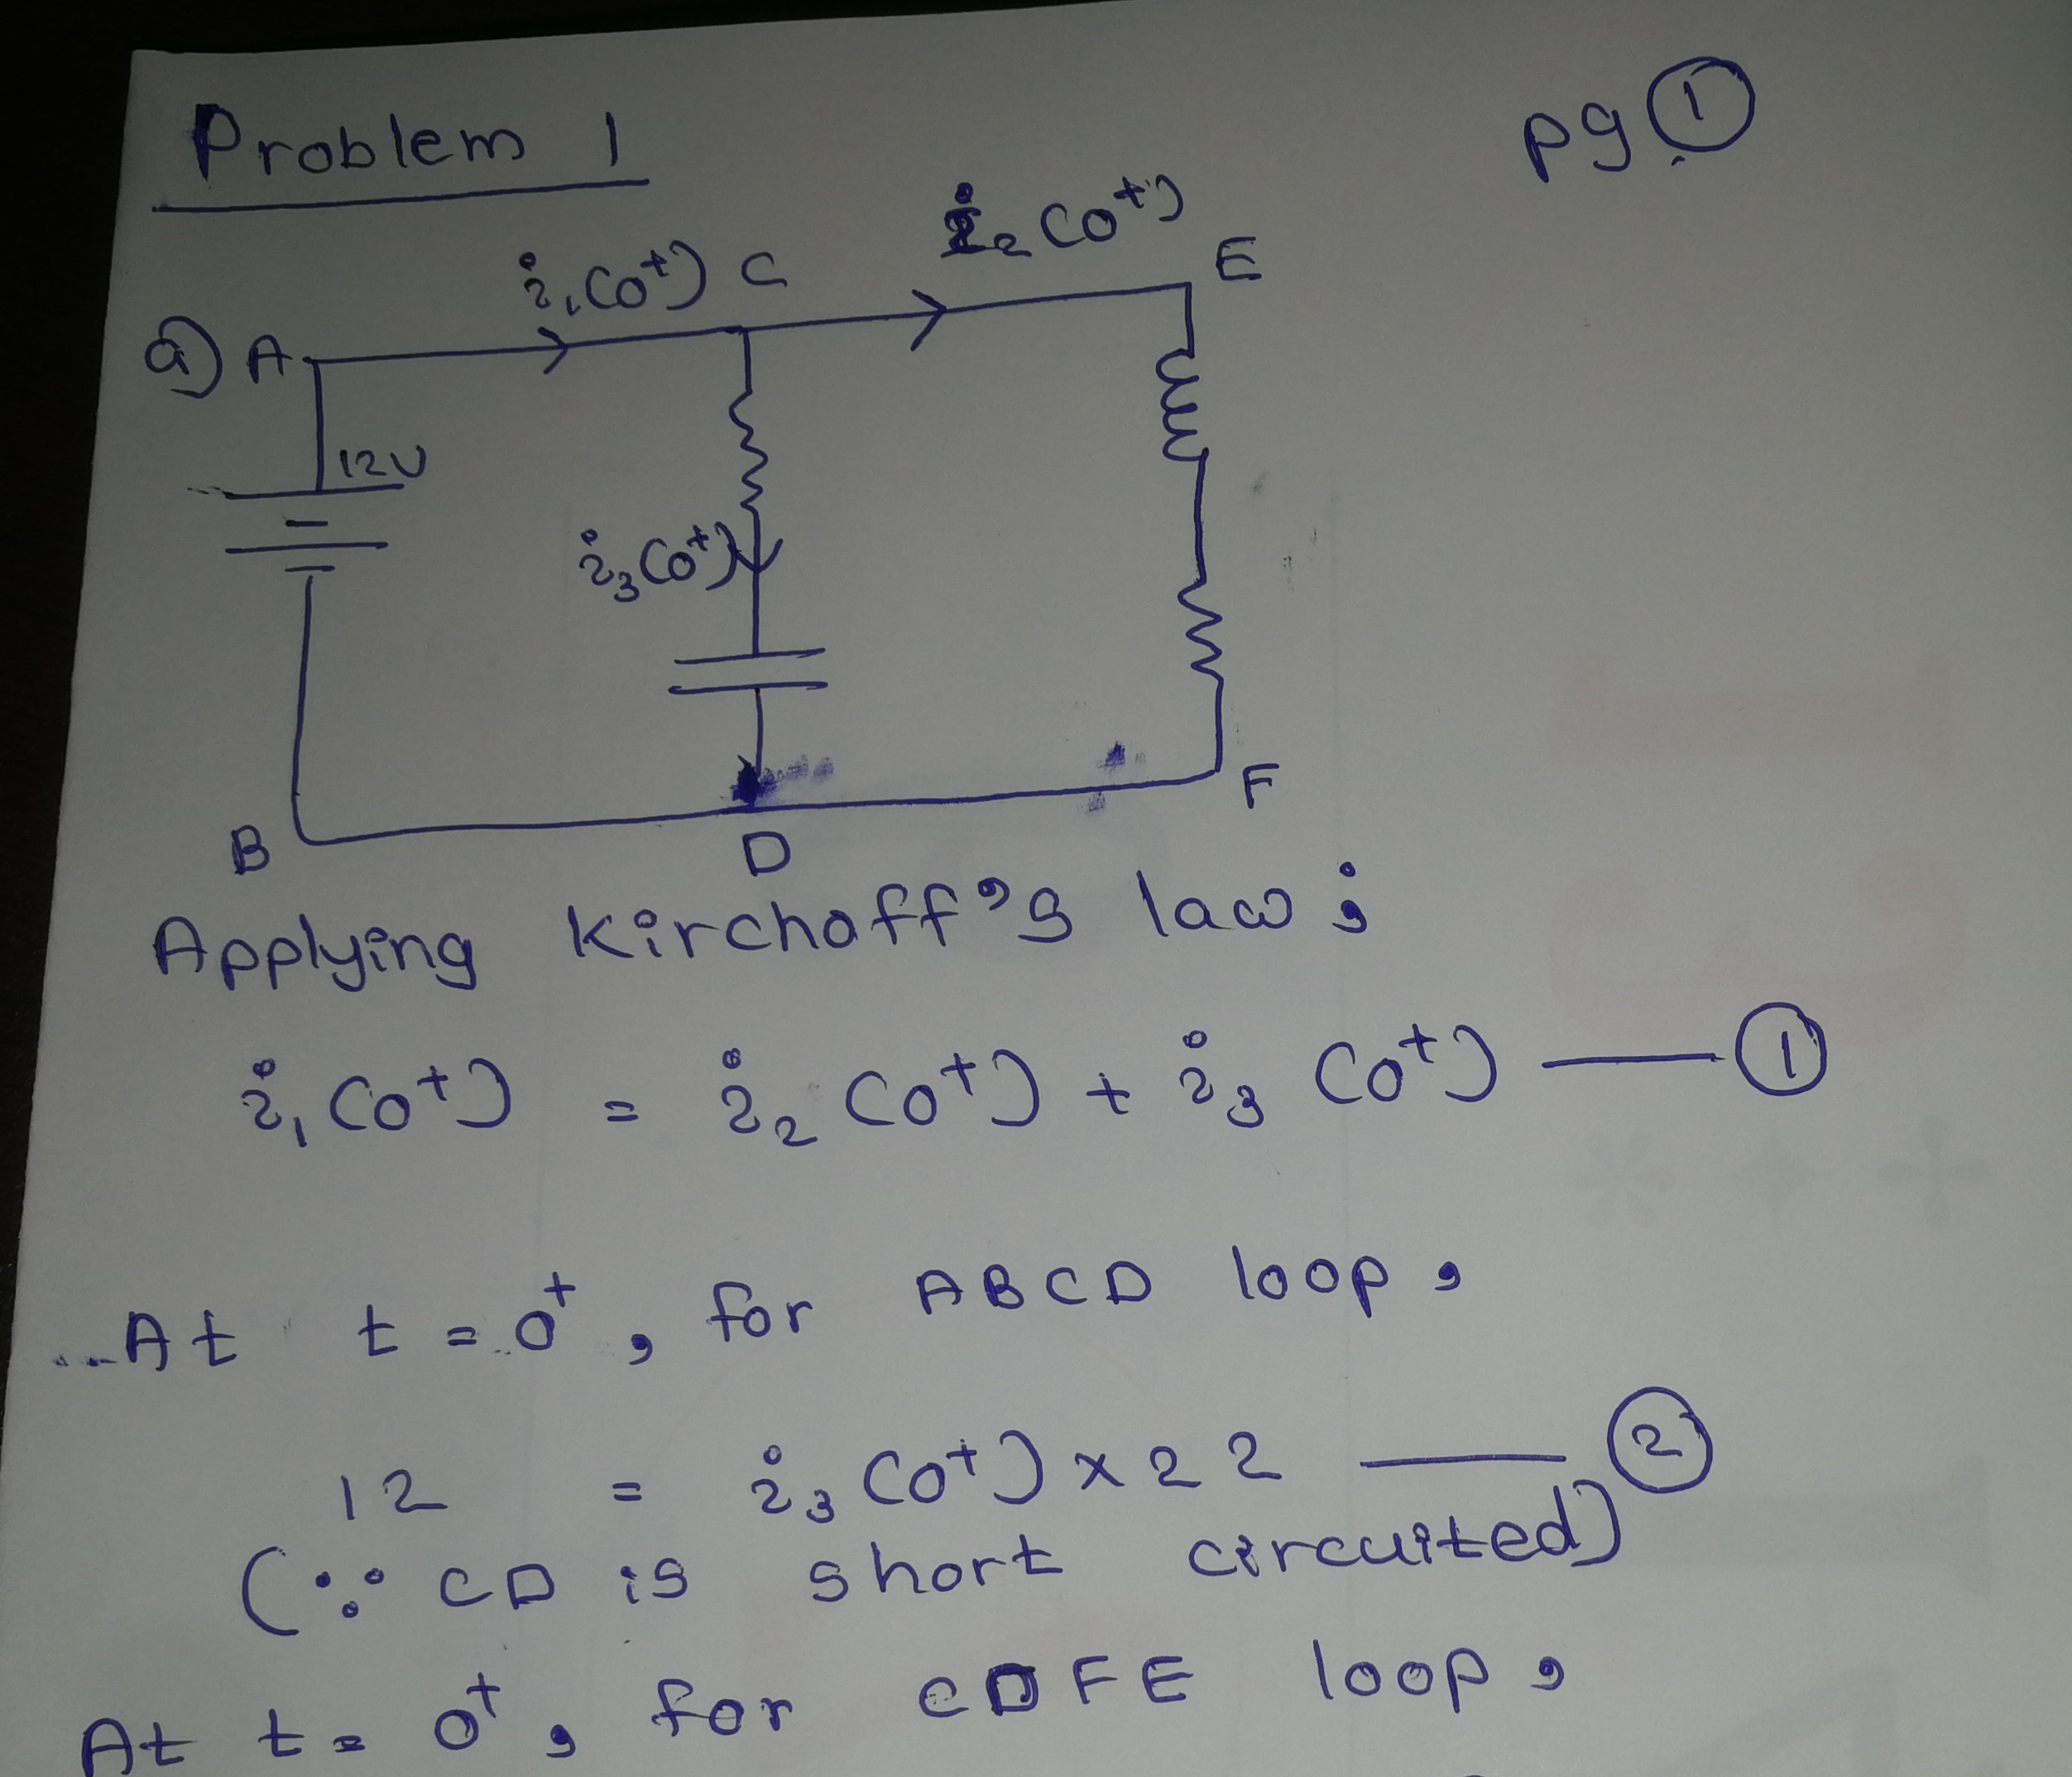 Problem 1
pg ①
i₁(0⁺) C i₂(0⁺) E
a) A
12V
i₃(0⁺)
F
B D
Applying Kirchoff's law;
i₁(0⁺) = i₂(0⁺) + i₃(0⁺) — ①
At t = 0⁺, for ABCD loop,
12 = i₃(0⁺) × 22 — ②
(∵ CD is short circuited)
At t = 0⁺, for CDFE loop,